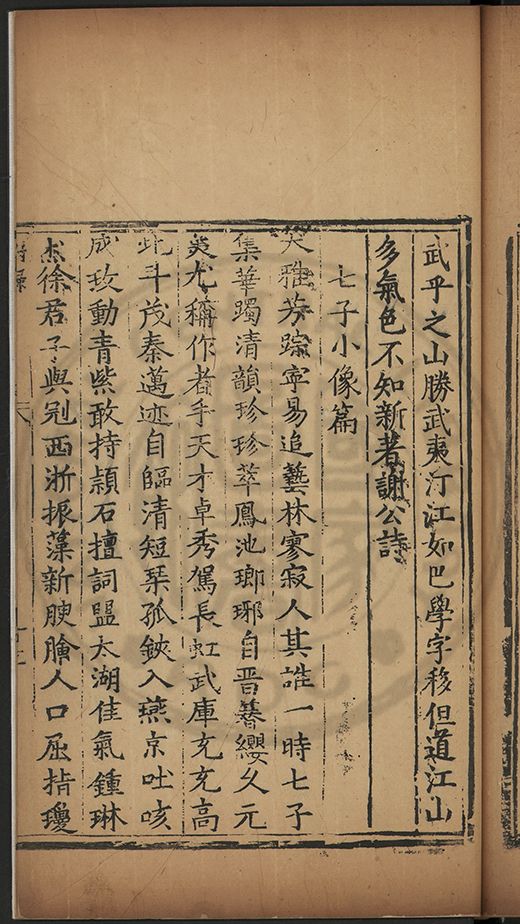 武平之山勝武夷汀江如巴學字移但道江山
多氣色不知新著謝公詩
七子小像篇
大雅芳踪寧易追藝林寥寂人其誰一時七子
集華躅清韻珍珍萃鳳池瑯琊自晋簪纓久元
美尤稱作者手天才卓秀駕長虹武庫充充高
北斗茂秦邁迹自臨清短琹孤鋏入燕京吐咳
成玫動青紫敢持頴石擅詞盟太湖佳氣鍾琳
杰徐君子與冠西浙振藻新腴膾人口屈指瓊